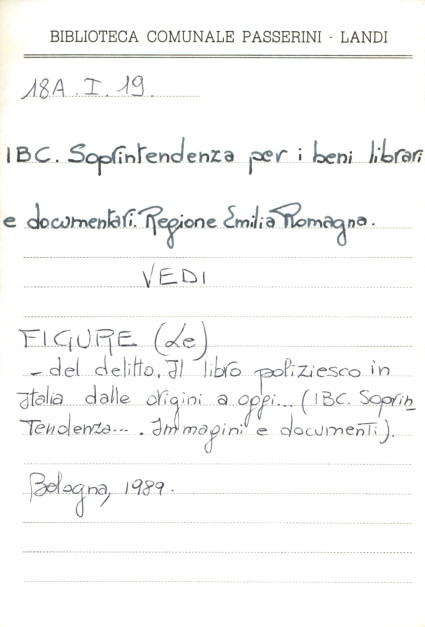 BIBLIOTECA COMUNALE PASSERINI - LANDI
18A. I. 19.
IBC. Soprintendenza per i beni librari
e documentari. Regione Emilia Romagna.
VEDI
FIGURE (Le)
- del delitto. Il libro poliziesco in
Italia dalle origini a oggi... (IBC. Soprin_
tendenza... . Immagini e documenti).
Bologna, 1989.